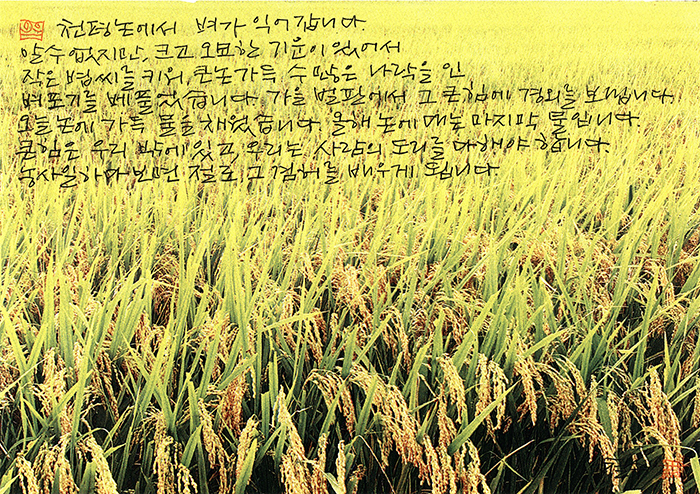 천평논에서 벼가 익어갑니다.
알 수 없지만, 크고 오묘한 기운이 있어서
작은 볍씨를 키워, 큰 논 가득 수많은 나락을 인,
벼포기를 베풀었습니다. 가을 벌판에서 그 큰 힘에 경외를 보냅니다.
오늘 논에 가득 물을 채웠습니다. 올해 논에 대는 마지막 물입니다.
큰 힘은 우리 밖에 있고, 우리는 사람의 도리를 다해야 합니다.
농사일 하다보면 절로, 그 겸허를 배우게 됩니다